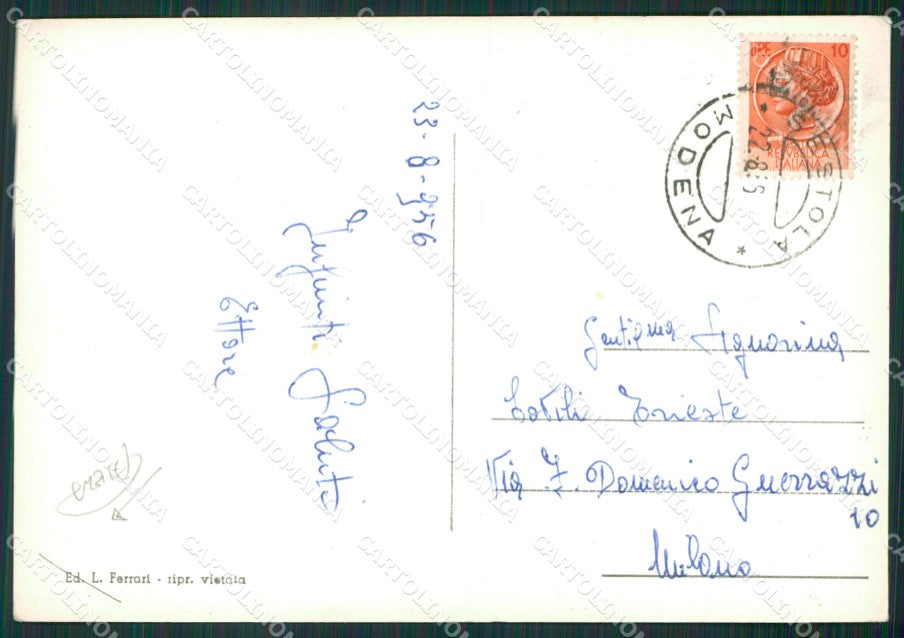 23-8-956
Infiniti Saluti
Ettore
Ed. L. Ferrari - ripr. vietata
10
REPVBBLICA
ITALIANA
SESTOLA
22.8.56
MODENA
Gentil.ma Signorina
Trieste
Via F. Domenico Guerrazzi
10
Milano
CARTOLINOMANIA